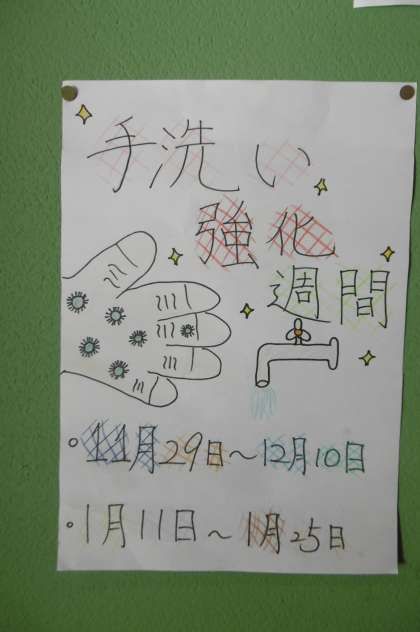 手洗い
強化
週間
・11月29日～12月10日
・1月11日～1月25日